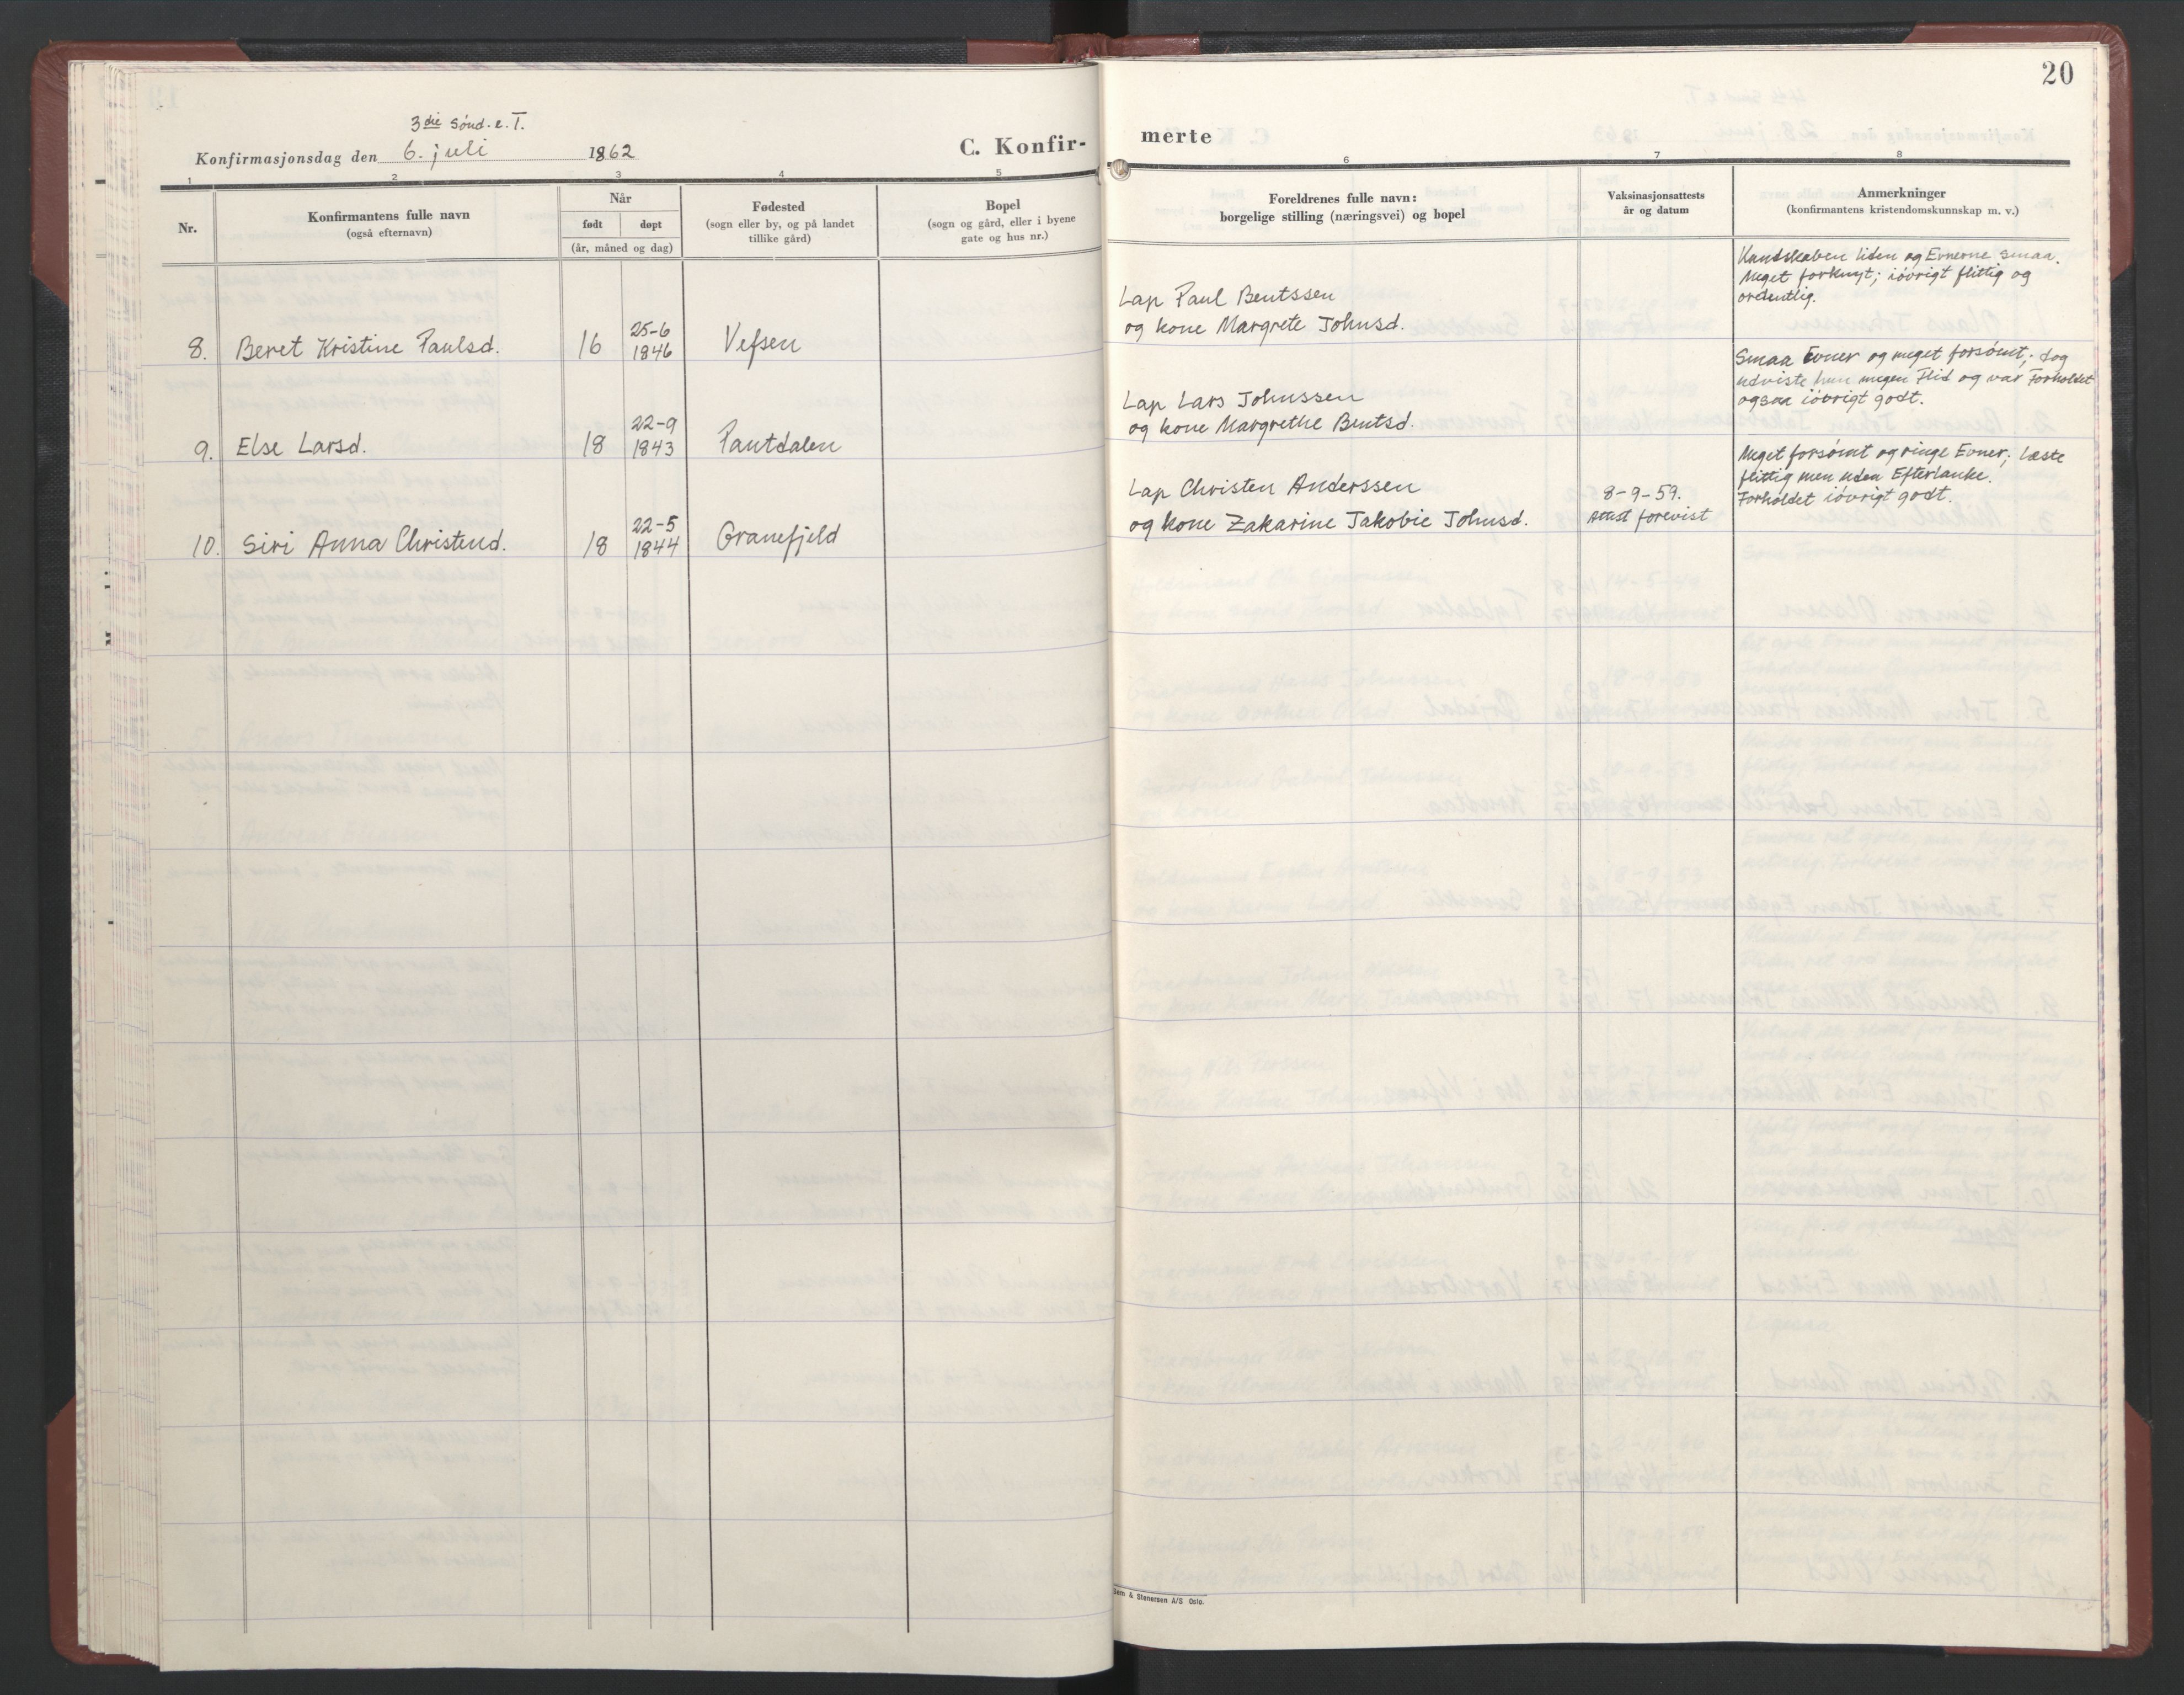 20
3die Sönd. e. T.
Konfirmasjonsdag den 6. juli 1862
C. Konfir-
merte
1 2 3 4 5 6 7 8
Nr.
Konfirmantens fulle navn
(også efternavn)
Når
født døpt
(år, måned og dag)
Fødested
(sogn eller by, og på landet
tillike gård)
Bopel
(sogn og gård, eller i byene
gate og hus nr.)
Foreldrenes fulle navn:
borgelige stilling (næringsvei) og bopel
Vaksinasjonsattests
år og datum
Anmerkninger
(konfirmantens kristendomskunnskap m. v.)
8. Beret Kristine Paulsd. 16 25-6
1846 Vefsen
Lap Paul Bentssen
og kone Margrete Johnsd.
Kundskaben liden og Evnerne smaa.
Meget forknyt; iövrigt flittig og
ordentlig.
9. Else Larsd. 18 22-9
1843 Pantdalen
Lap Lars Johnssen
og kone Margrethe Bentsd.
Smaa Evner og meget forsömt; dog
udviste hun megen Flid og var Forholdet
ogsaa iövrigt godt.
10. Siri Anna Christend. 18 22-5
1844 Granefjeld
Lap Christen Anderssen
og kone Zakarine Jakobie Johnsd.
8-9-59.
Attest forevist
Meget forsömt og ringe Evner; Læste
flittig men uden Eftertanke.
Forholdet iövrigt godt.
Sem & Stenersen A/S Oslo.